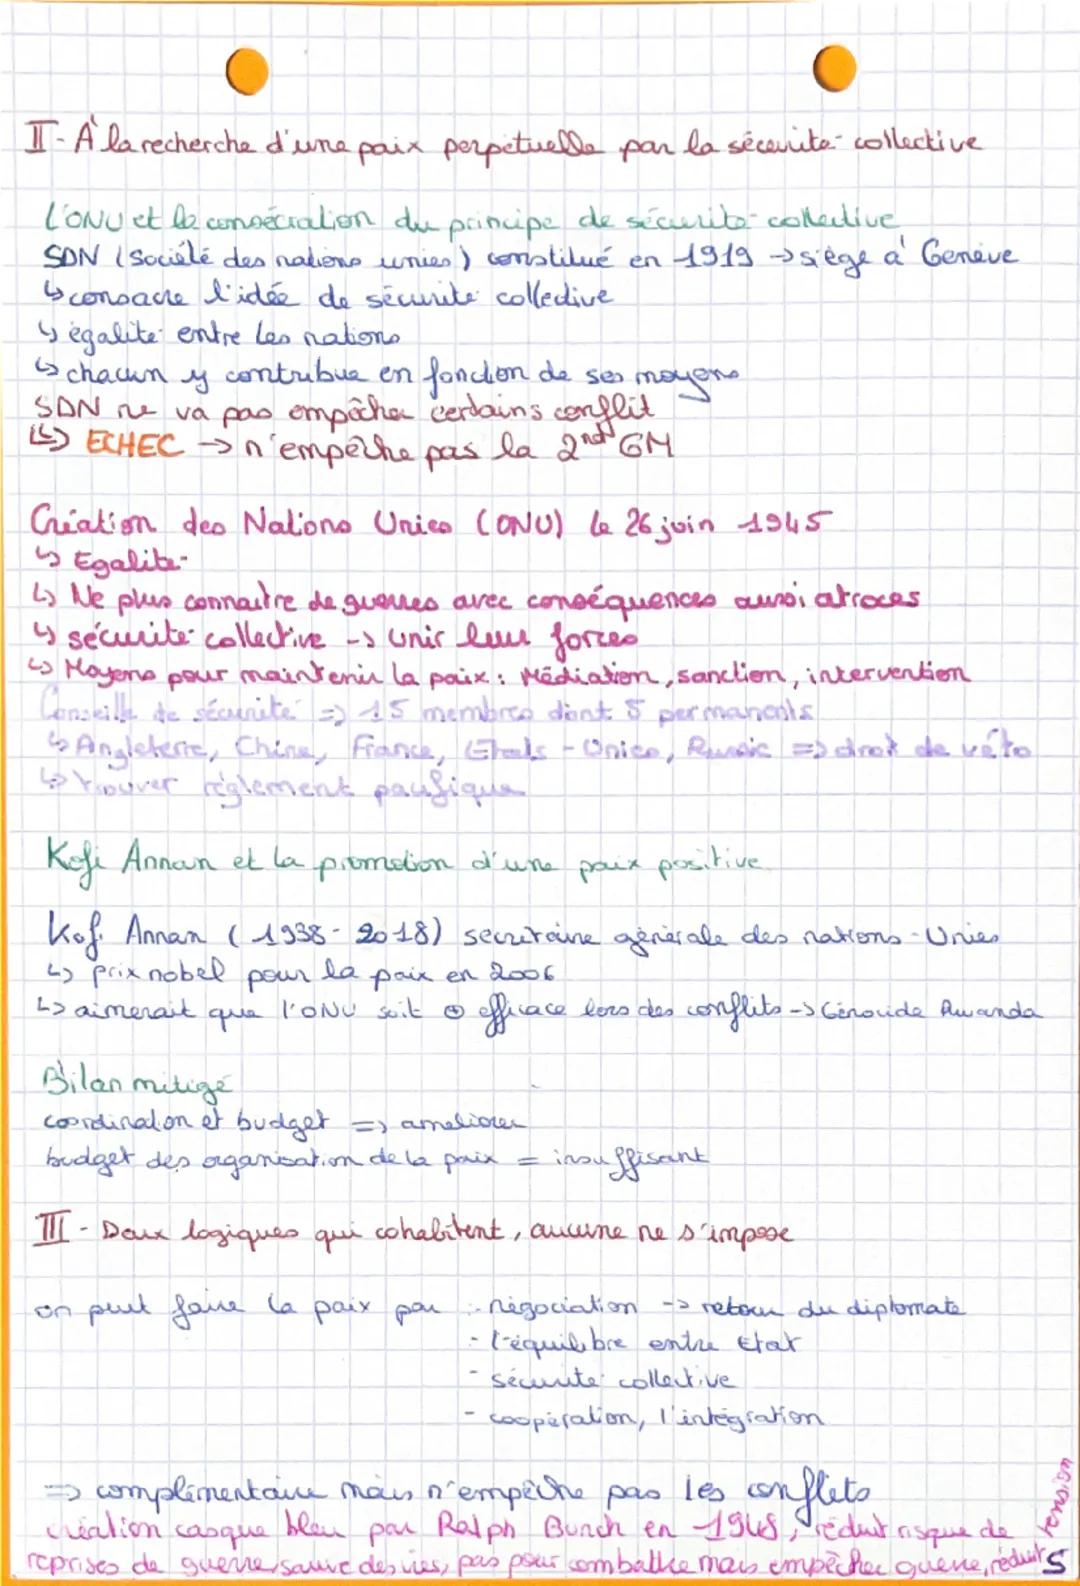 II - À la recherche d'une paix perpétuelle par la sécurité collective
L'ONU et la consécration du principe de sécurité collective
SDN (Société des nations unies) constitué en 1919 → siège à Genève
↳ consacre l'idée de sécurité collective
↳ égalité entre les nations
↳ chacun y contribue en fonction de ses moyens
SDN ne va pas empêcher certains conflit
↳ ECHEC → n'empêche pas la 2nd GM
Création des Nations Unies (ONU) le 26 juin 1945
↳ Egalité
↳ Ne plus connaitre de guerres avec conséquences aussi atroces
↳ sécurité collective -> unir leur forces
↳ Moyens pour maintenir la paix : Médiation, sanction, intervention
Conseille de sécurité => 15 membres dont 5 permanents
↳ Angleterre, Chine, France, Etats - Unies, Russie => droit de véto
↳ trouver règlement paufique
Kofi Annan et la promotion d'une paix positive
Kofi Annan (1938 - 2018) secretaire générale des nations - Unies
↳ prix nobel pour la paix en 2006
↳ aimerait que l'ONU soit ⊕ efficace lors des conflits -> Génocide Rwanda
Bilan mitigé
coordination et budget => ameliorer
budget des organisation de la paix = insuffisant
III - Deux logiques qui cohabitent, aucune ne s'impose
on peut faire la paix par : - négociation -> retour du diplomate
- l'équilibre entre Etat
- sécurité collective
- coopération, l'intégration
=> complémentaire mais n'empêche pas les conflits
création casque bleu par Ralph Bunch en 1948, réduit risque de
reprises de guerre, sauve des vies, pas pour combattre mais empêcher guerre, réduit s
tension